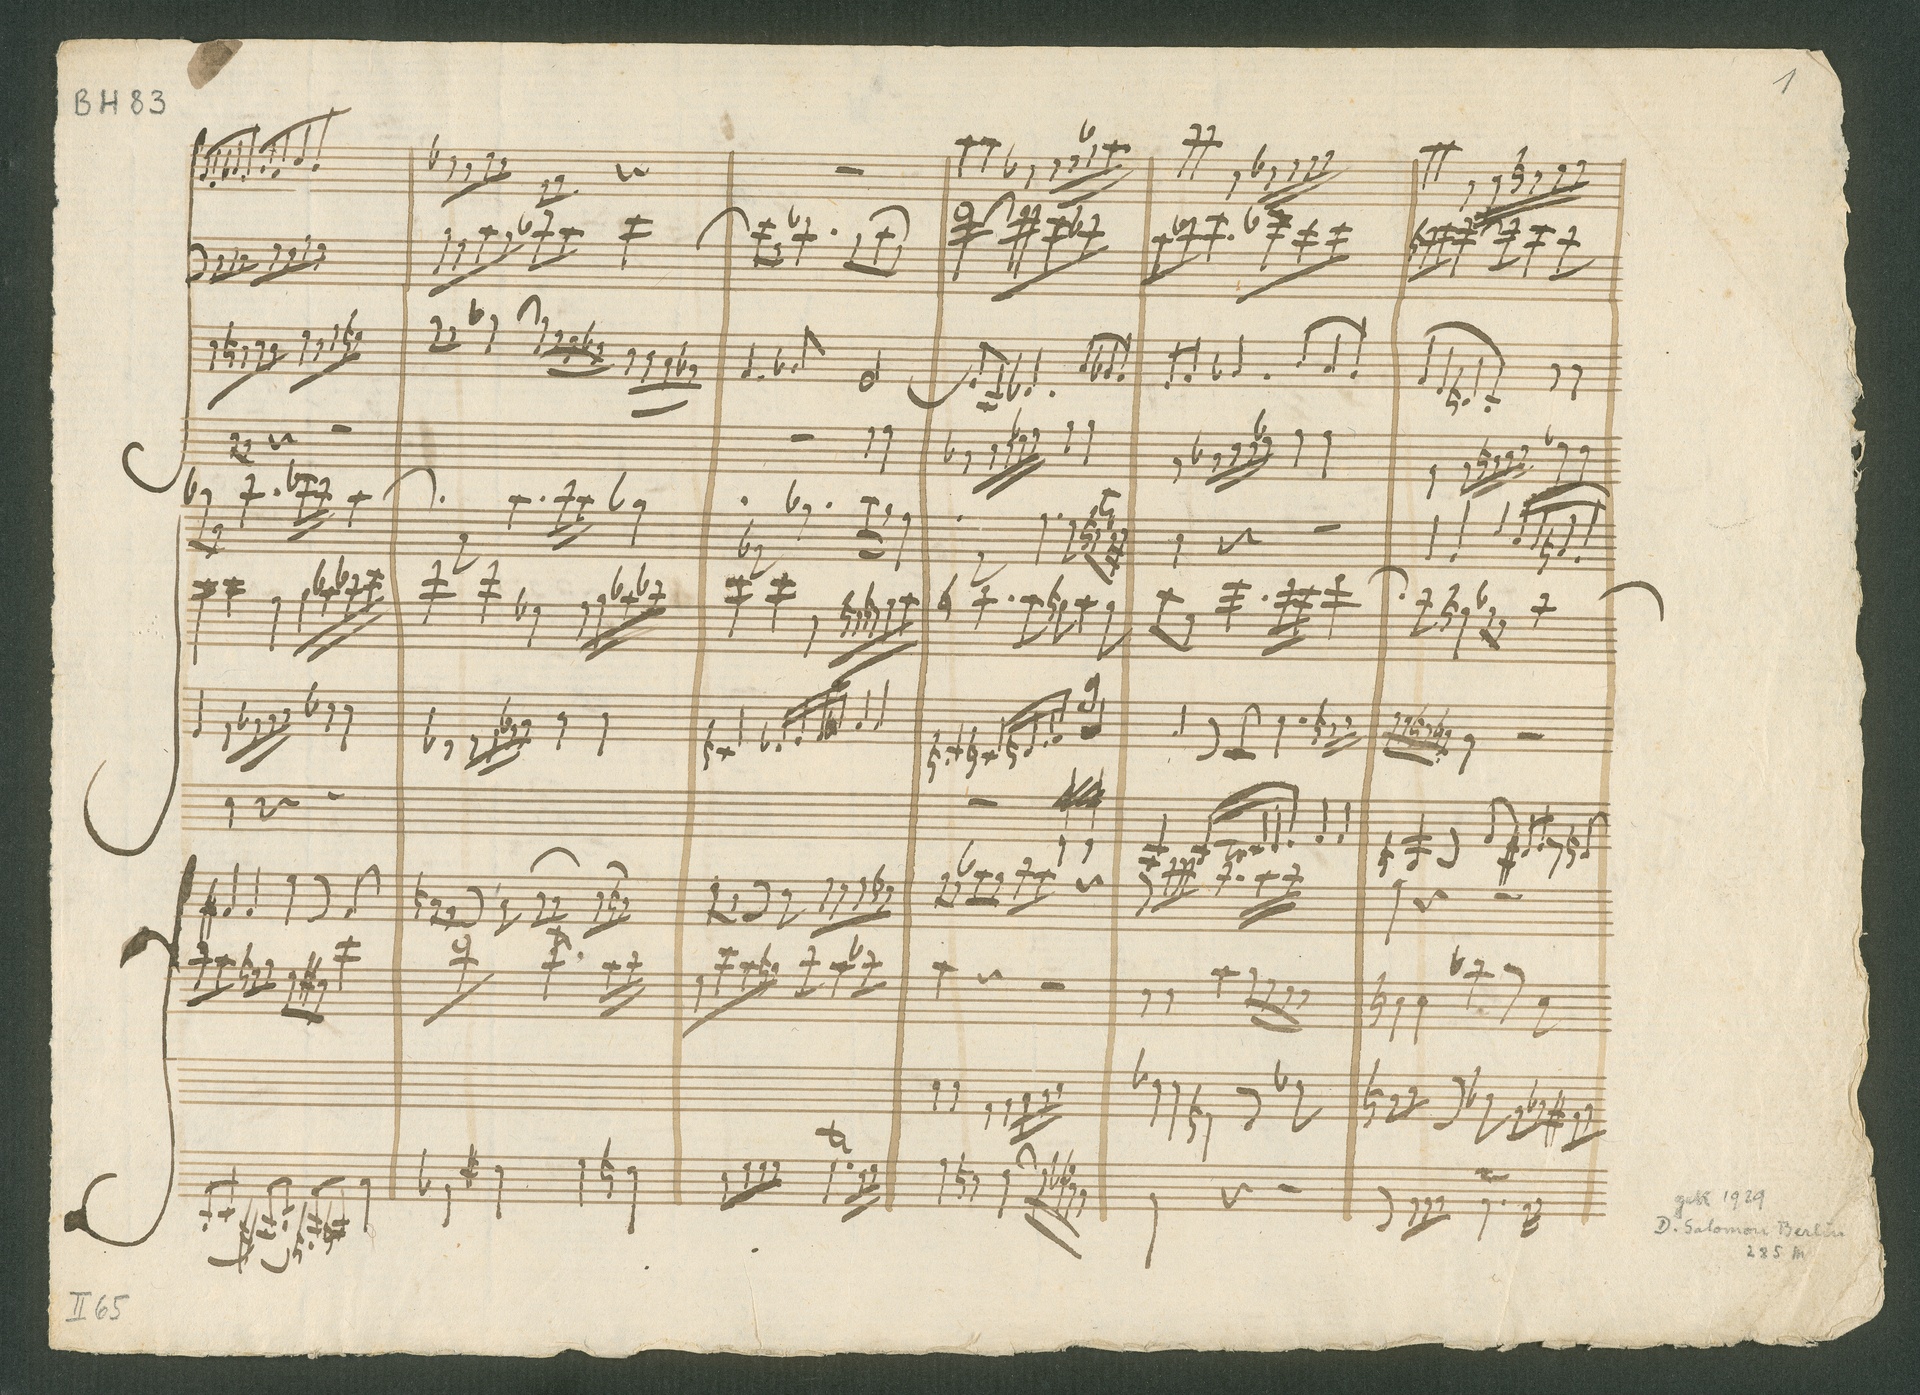 BH 83
1
gek 1929
D. Salomon Berlin
285 M
II 65